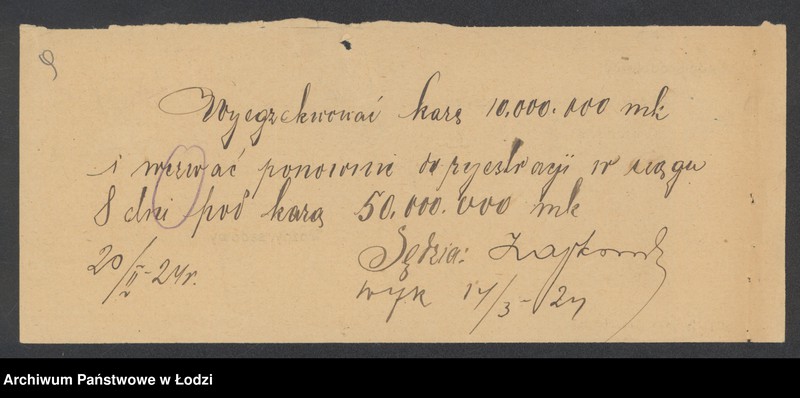 9
Wyegzekwować karę 10.000.000 mk
i wezwać ponownie do rejestracji w ciągu
8 dni pod karą 50.000.000 mk
20/II-24r. Sędzia:
wyk 17/3-24
Archiwum Państwowe w Łodzi